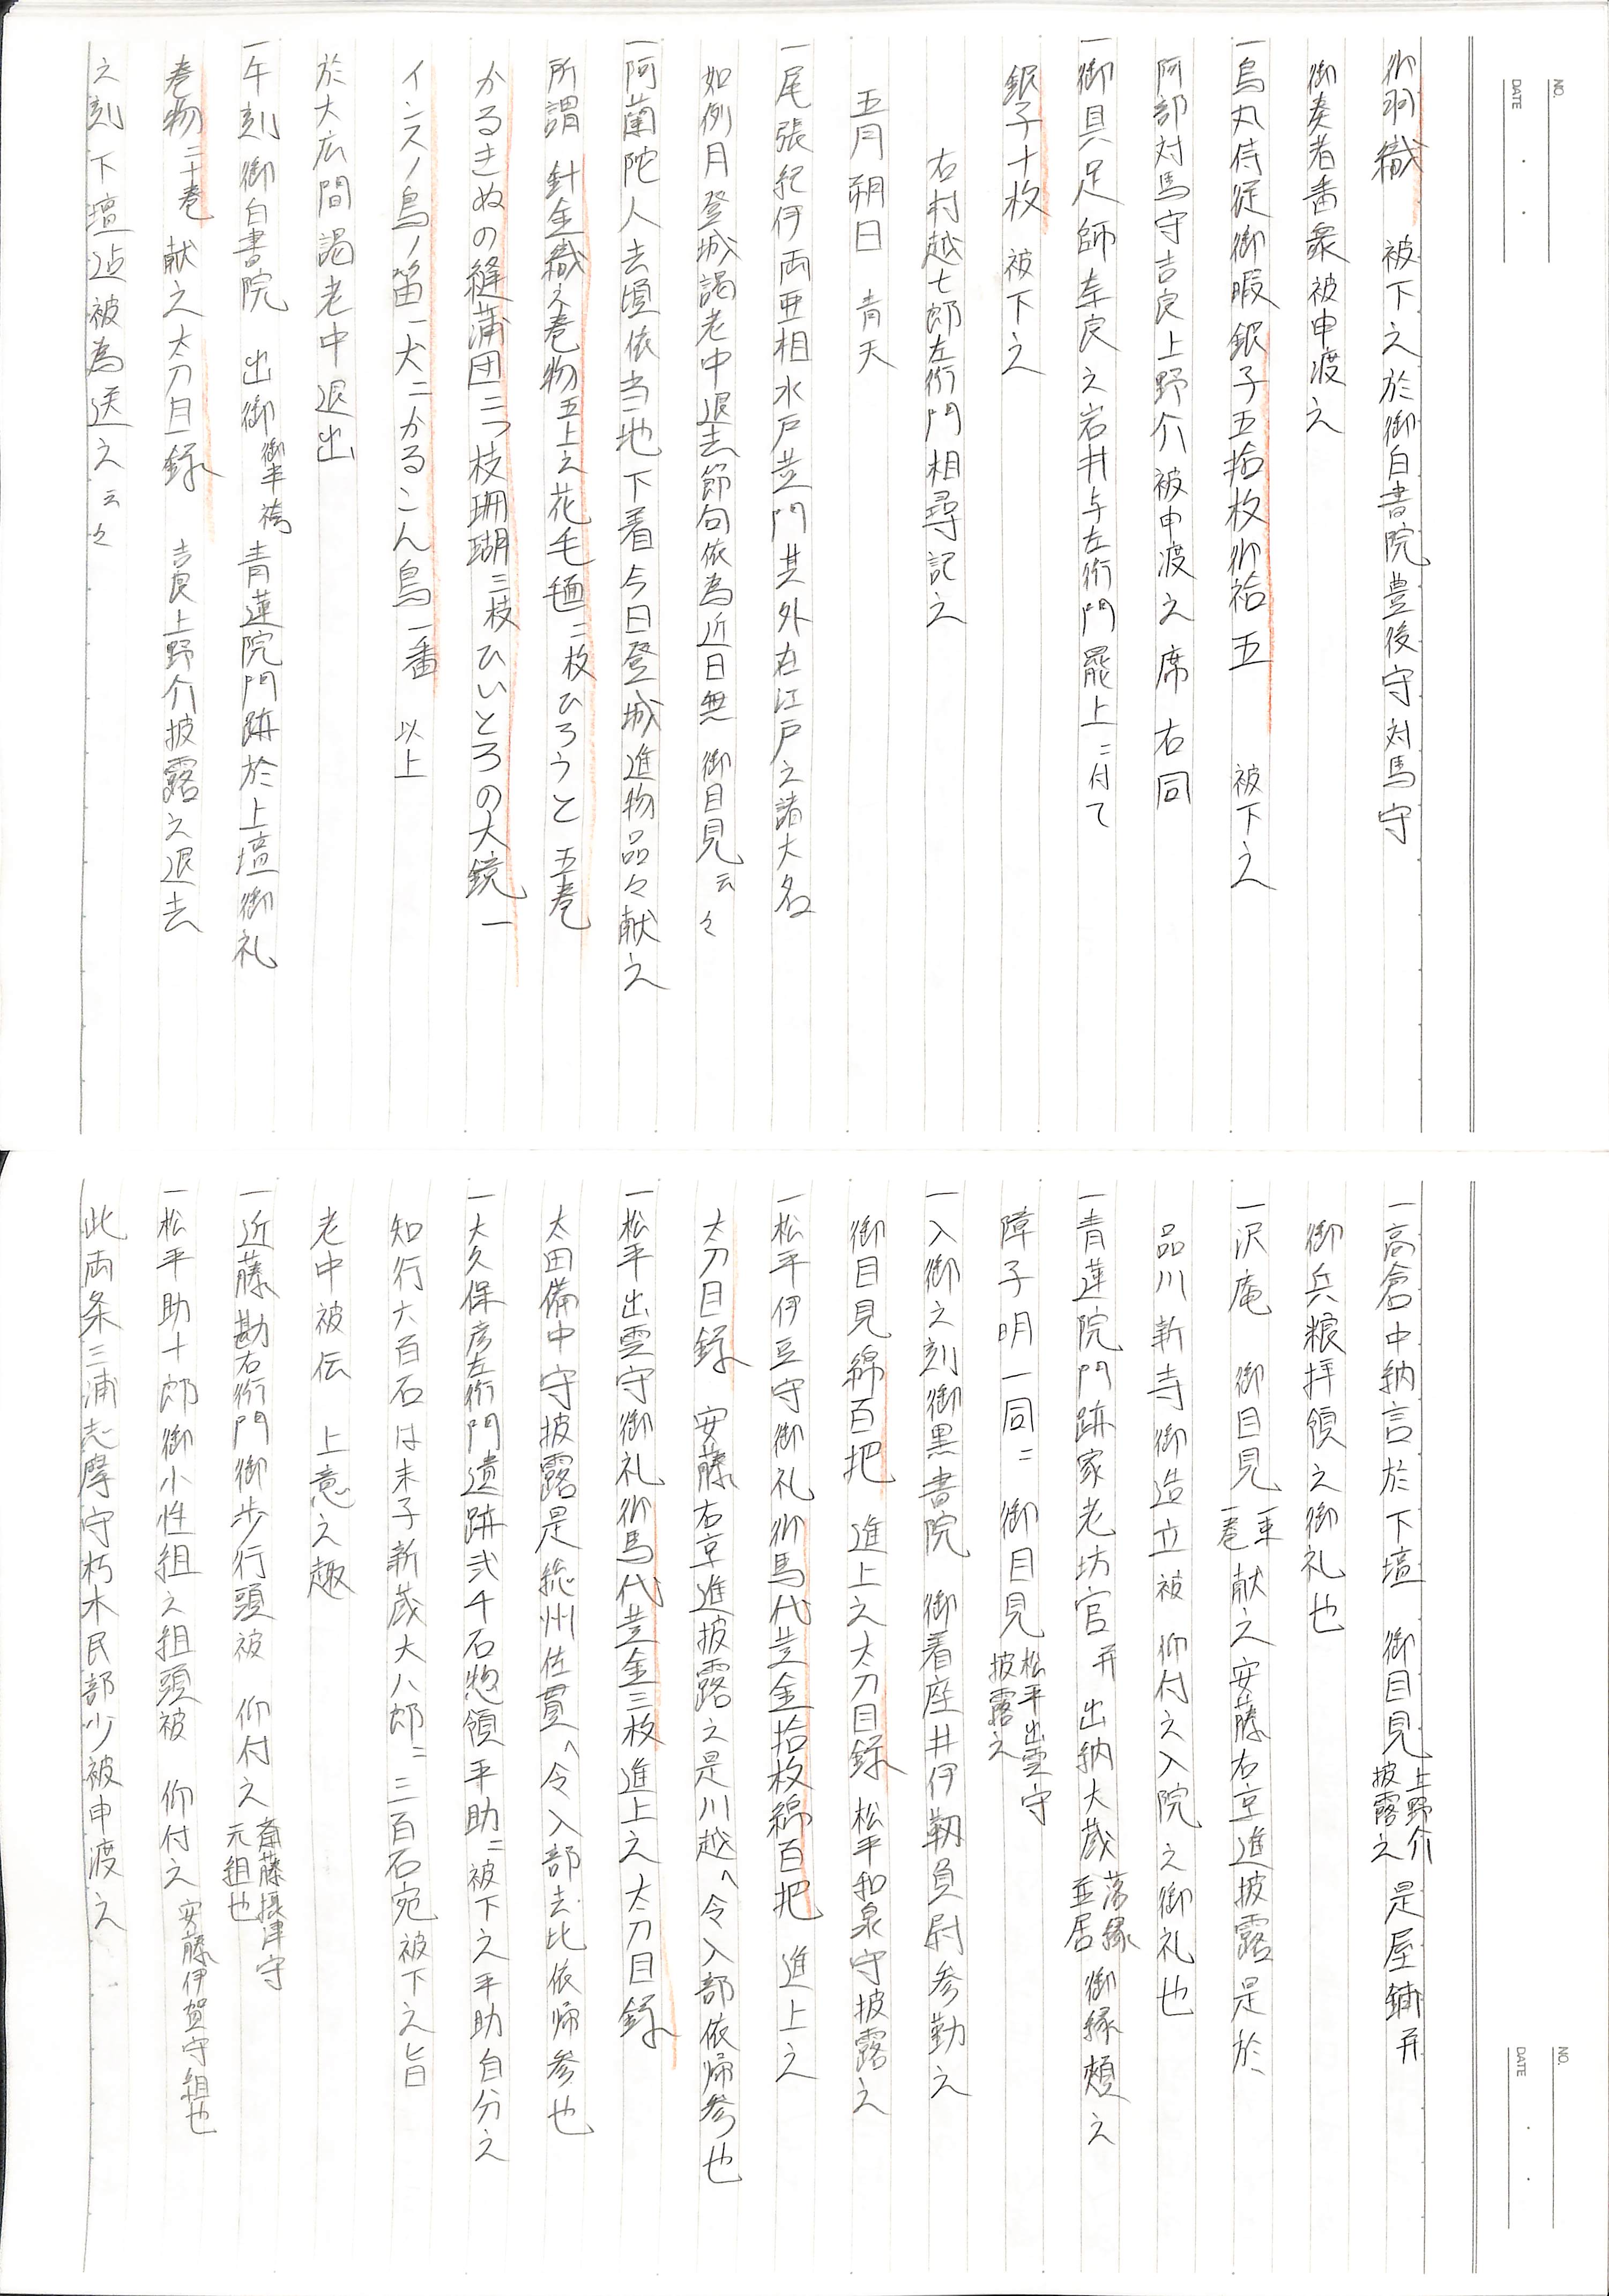 NO.
DATE
御羽織 被下之於御白書院豊後守対馬守
御奏者番衆被申渡之
一烏丸侍従御暇銀子五拾枚御袷五 被下之
阿部対馬守吉良上野介被申渡之席右同
一御具足師奈良之岩井与左衛門罷上ニ付て
銀子十枚 被下之
右村越七郎左衛門相尋記之
五月朔日 青天
一尾張紀伊両亜相水戸並門其外在江戸之諸大名
如例月登城謁老中退去節句依為近日無 御目見云々
一阿蘭陀人去頃依当地下着今日登城進物品々献之
所謂 針金織之巻物五上之花毛氈二枚ひろうと五巻
かるきぬの縫蒲団二つ枝珊瑚三枝ひいとろの大鏡一
インスノ鳥ノ笛一犬二かるこん鳥一番 以上
於大広間謁老中退出
一午刻御白書院 出御御半袴青蓮院門跡於上壇御礼
巻物二十巻献之太刀目録 吉良上野介披露之退去
之刻下壇迠被為送之云々
NO.
DATE
一高倉中納言於下壇 御目見上野介披露之是屋鋪并
御兵粮拝領之御礼也
一沢庵 御目見一束一巻献之安藤右京進披露是於
品川新寺御造立被 仰付之入院之御礼也
一青蓮院門跡家老坊官并 出納大蔵落縁並居御縁頬之
障子明一同ニ 御目見松平出雲守披露之
一入御之刻御黒書院 御着座井伊靱負尉参勤之
御目見綿百把 進上之太刀目録松平和泉守披露之
一松平伊豆守御礼御馬代並金拾枚綿百把 進上之
太刀目録 安藤右京進披露之是川越へ令入部依帰参也
一松平出雲守御礼御馬代並金三枚進上之太刀目録
太田備中守披露是総州佐貫へ令入部去比依帰参也
一大久保彦左衛門遺跡弐千石惣領平助ニ被下之平助自分之
知行大百石は末子新蔵大八郎ニ三百石宛被下之旨
老中被伝 上意之趣
一近藤勘右衛門御歩行頭被 仰付之斎藤摂津守元組也
一松平助十郎御小性組之組頭被 仰付之安藤伊賀守組也
此両条三浦志摩守朽木民部少被申渡之